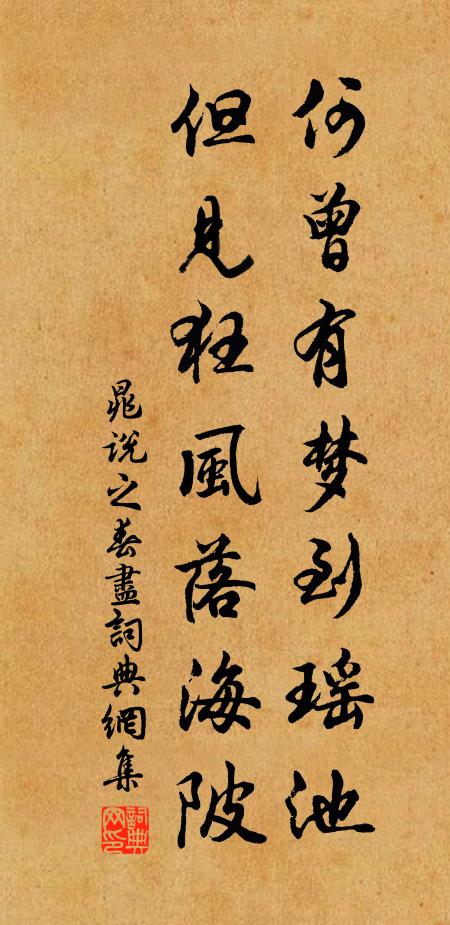 何曾有梦到瑶池
但見狂風落海陂
晁說之春盡詞典網集
詞典網印